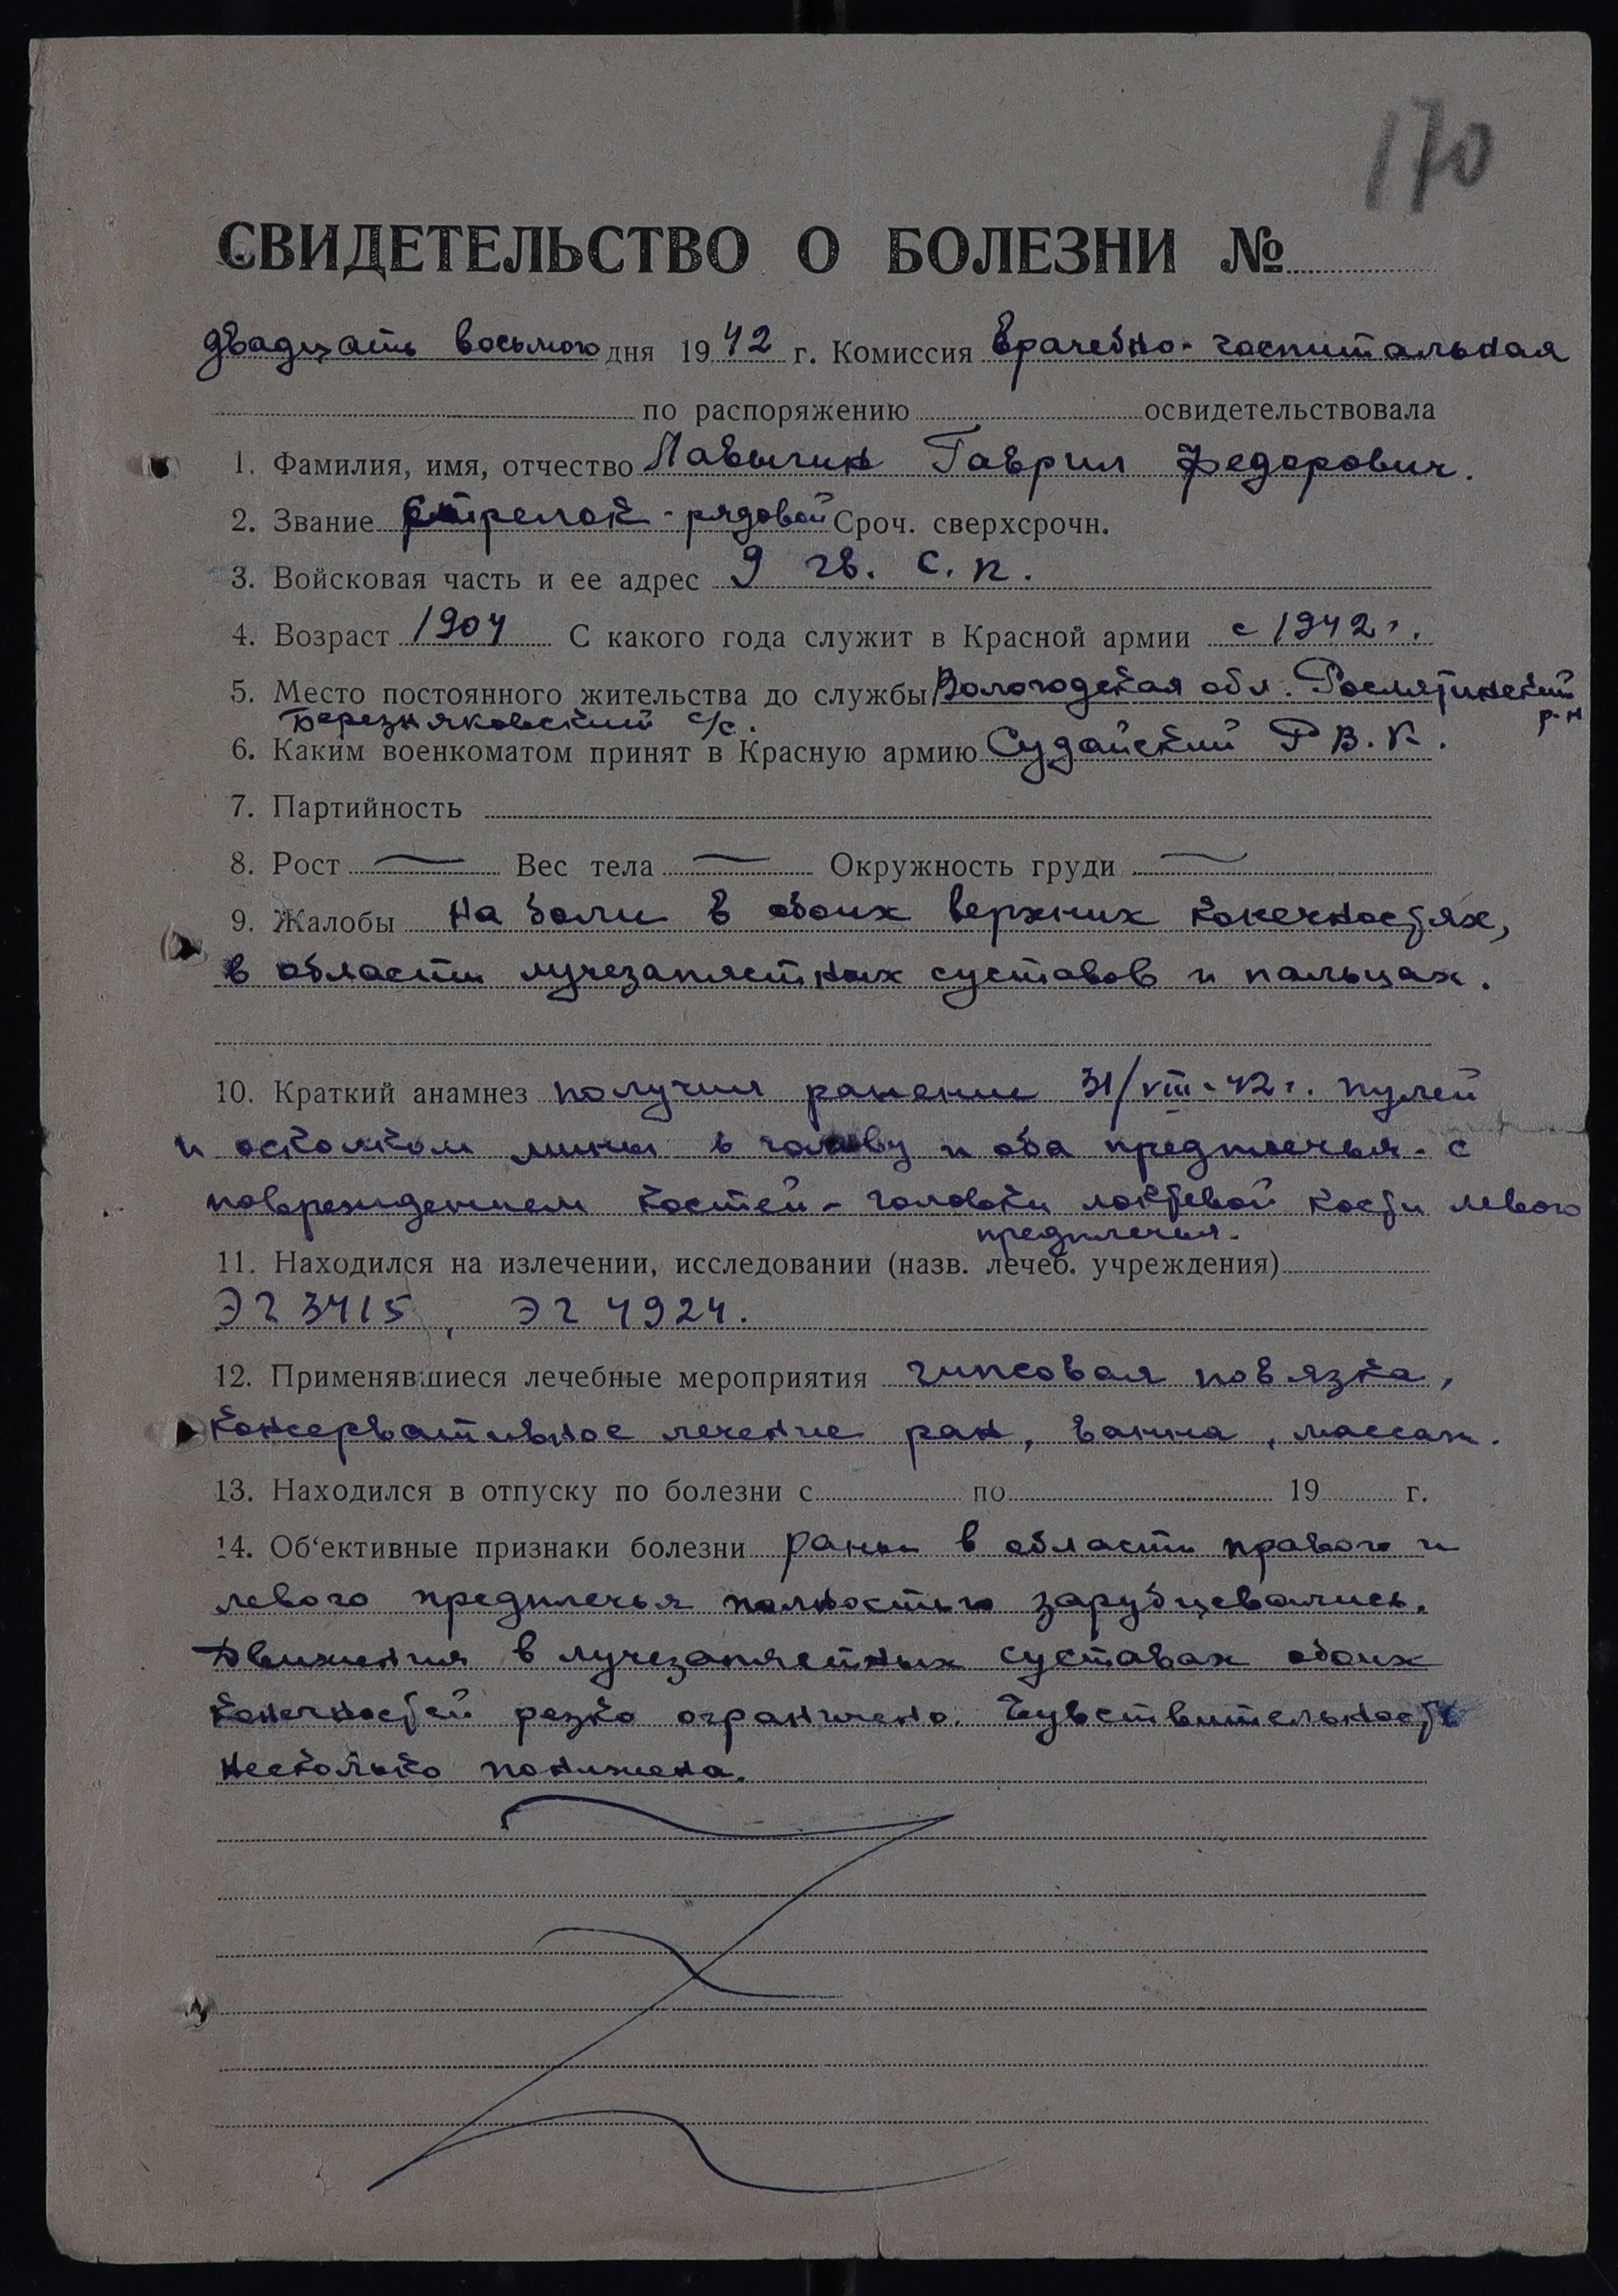 170
СВИДЕТЕЛЬСТВО О БОЛЕЗНИ №
двадцать восьмого дня 1942 г. Комиссия врачебно-госпитальная
по распоряжению освидетельствовала
1. Фамилия, имя, отчество Лавыгин Гаврил Федорович.
2. Звание стрелок - рядовой Сроч. сверхсрочн.
3. Войсковая часть и ее адрес 9 гв. с.п.
4. Возраст 1904 С какого года служит в Красной армии с 1942 г.
5. Место постоянного жительства до службы Вологодская обл. Рослятинский р-н
Березняковский с/с.
6. Каким военкоматом принят в Красную армию Судайский Р В.К.
7. Партийность
8. Рост — Вес тела — Окружность груди —
9. Жалобы на боли в обоих верхних конечностях,
в области лучезапястных суставов и пальцах.
10. Краткий анамнез получил ранение 31/VIII-42 г. пулей
и осколком мины в голову и оба предплечья - с
повреждением костей - головки локтевой кости левого
предплечья.
11. Находился на излечении, исследовании (назв. лечеб. учреждения)
ЭГ 3415, ЭГ 4924.
12. Применявшиеся лечебные мероприятия гипсовая повязка,
консервативное лечение ран, ванна, массаж.
13. Находился в отпуску по болезни с по 19 г.
14. Об‘ективные признаки болезни раны в области правого и
левого предплечья полностью зарубцевались.
Движения в лучезапястных суставах обоих
конечностей резко ограничено. Чувствительность
несколько понижена.